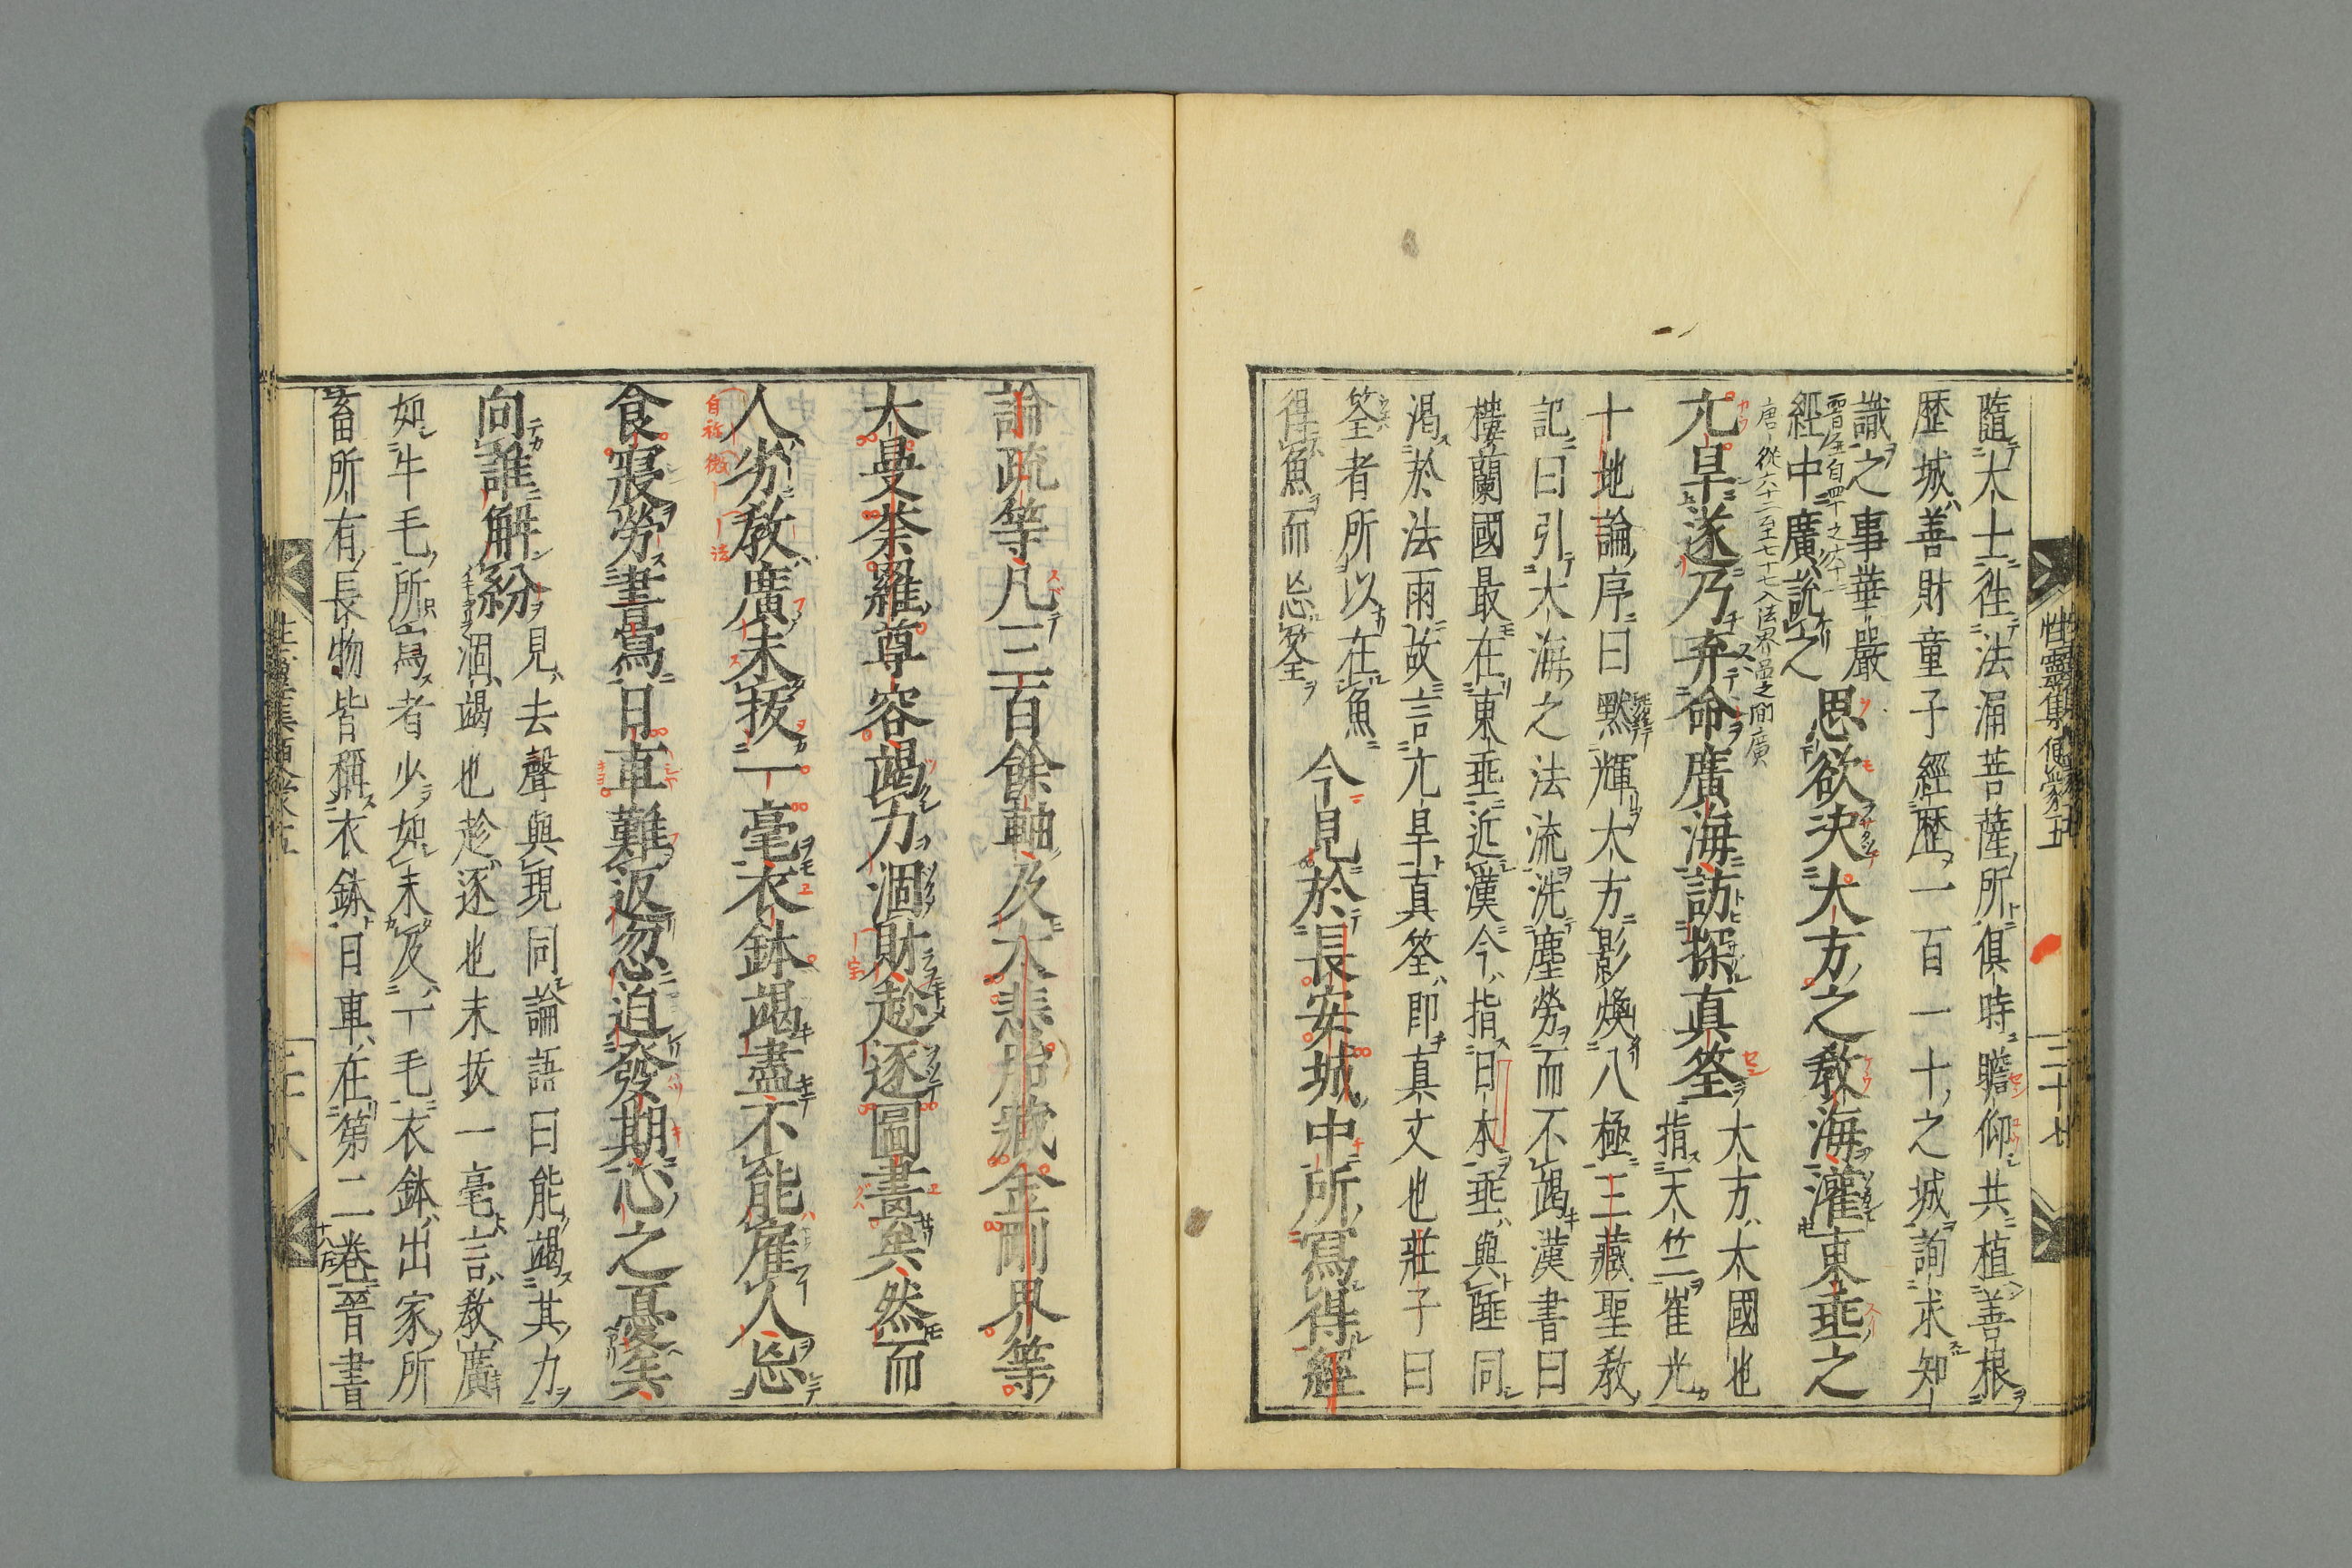 隨大士往法涌菩薩所俱時瞻仰共植善根
歴城善財童子經歴一百一十之城詢求知
識之事華嚴
經中廣說之
思欲決大方之教海灌東垂之
亢旱遂乃弃命廣海訪探真筌
大方大國也
指天竺崔光
十地論序曰默輝大方影煥八極三藏聖教
記曰引大海之法流洗塵勞而不竭漢書曰
樓蘭國最在東垂近漢今指日本垂與陲同
渇於法雨故言亢旱真筌即真文也莊子曰
筌者所以在魚
得魚而忘筌
今見於長安城中所寫得經
論疏等凡三百餘軸及大悲胎藏金剛界等
大曼荼羅尊容竭力涸財趁逐圖畫矣然而
人劣教廣未抜一毫衣鉢竭盡不能雇人忘
食寢勞書寫日車難返忽迫發期心之憂矣
向誰解紛
見去聲與現同論語曰能竭其力
涸竭也趁逐也未抜一毫言教廣
如牛毛所寫者少如未及一毛衣鉢出家所
畜所有長物皆稱衣鉢日車在第二卷晉書
性靈集便蒙五
三十七